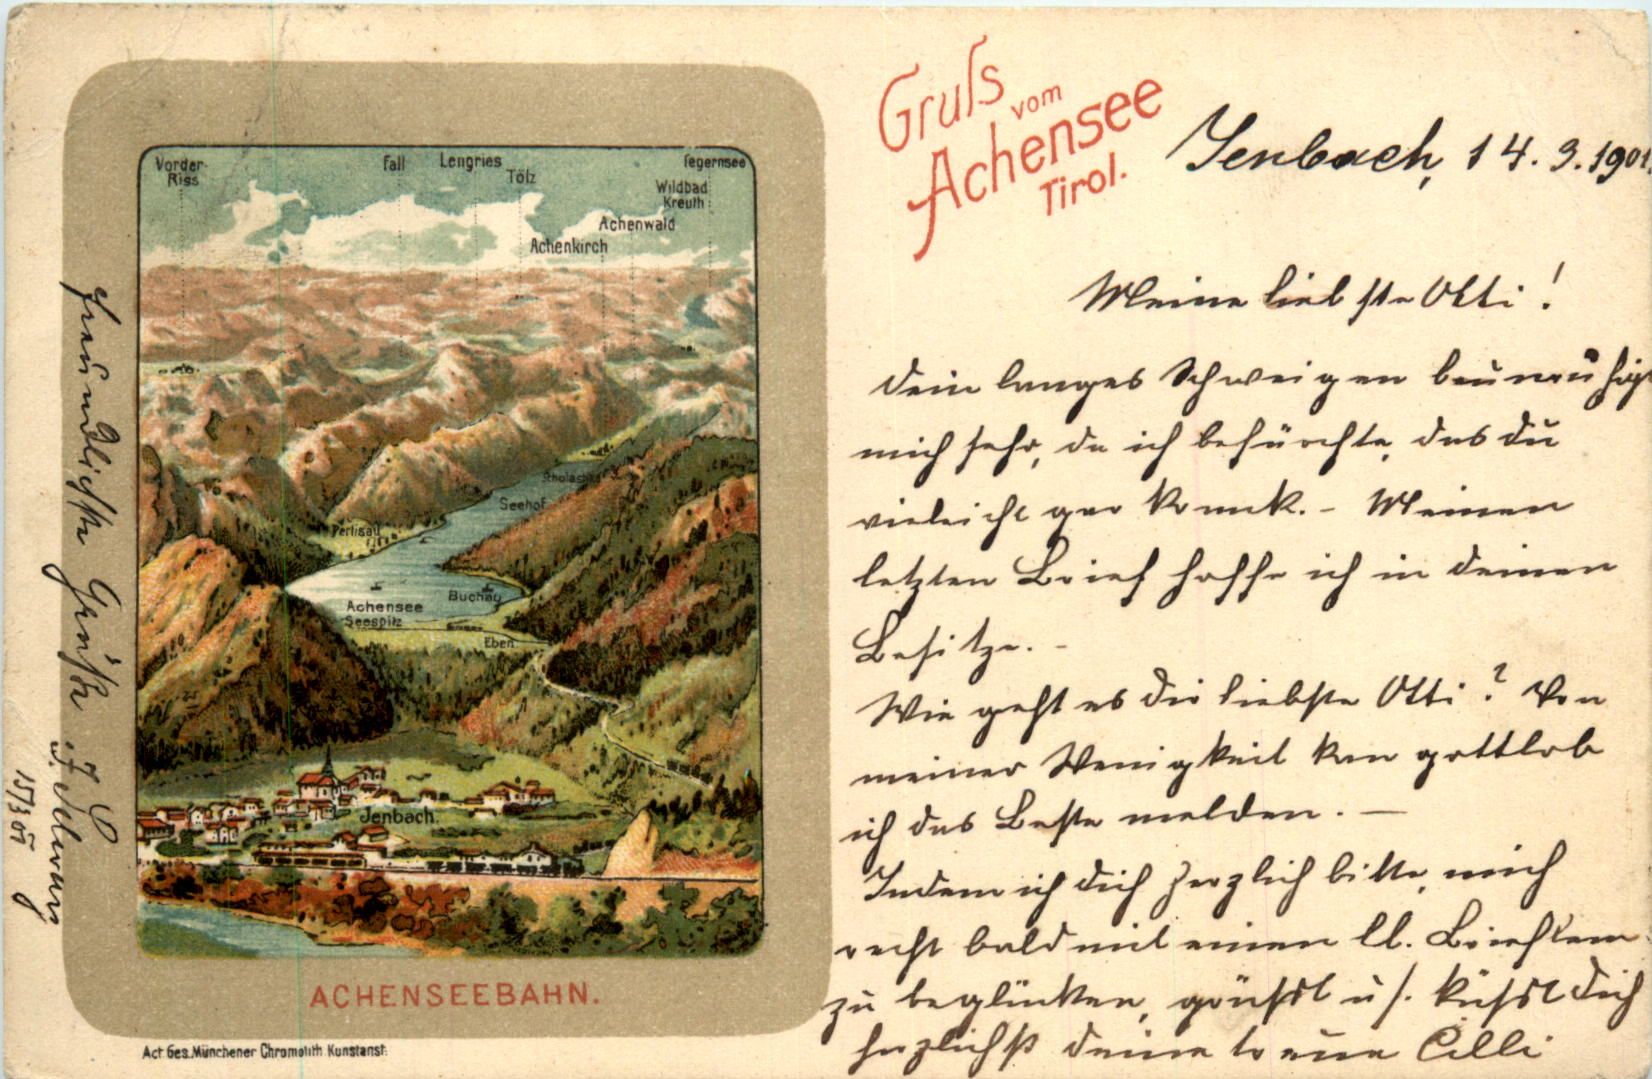 Vorder-
Riss
Fall
Lengries
Tölz
Tegernsee
Wildbad
Kreuth
Achenwald
Achenkirch
Scholastika
Seehof
Pertisau
Buchau
Achensee
Seespitz
Eben
Jenbach.
ACHENSEEBAHN.
Act. Ges. Münchener Chromolith Kunstanst.
Gruſs vom
Achensee
Tirol.
Jenbach, 14. 3. 1901.
Meine liebste Otti!
Dein langes Schweigen beunruhigt
mich sehr, da ich befürchte, das du
vieleicht gar krank. - Meinen
letzten Brief hoffe ich in deinen
Besitze. -
Wie geht es dir liebste Otti? Von
meiner Wenigkeit kan gottlob
ich das Beste melden. —
Indem ich dich herzlich bitte, mich
recht bald mit einen lb. Brieflein
zu beglücken, grüßt u. küßt dich
herzlichst deine treue Cilli
freundlichste Grüße
15/3 01